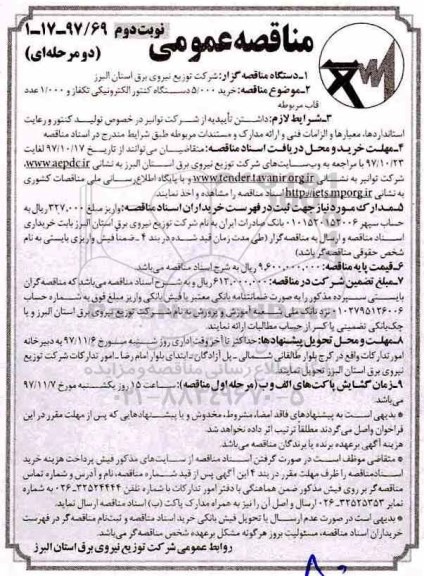 مناقصه عمومی
نوبت دوم
۹۷/۶۹-۱۷-۱
(دو مرحله‌ای)
۱-دستگاه مناقصه گزار: شرکت توزیع نیروی برق استان البرز
۲-موضوع مناقصه: خرید ۵/۰۰۰ دستگاه کنتور الکترونیکی تکفاز و ۱/۰۰۰ عدد
قاب مربوطه
۳-شرایط لازم: داشتن تأییدیه از شرکت توانیر در خصوص تولید کنتور و رعایت
استانداردها، معیارها و الزامات فنی و ارائه مدارک و مستندات مربوطه طبق شرایط مندرج در اسناد مناقصه
۴-مهلت خرید و محل دریافت اسناد مناقصه: متقاضیان می‌توانند از تاریخ ۹۷/۱۰/۱۷ لغایت
۹۷/۱۰/۲۳ با مراجعه به وب‌سایت‌های شرکت توزیع نیروی برق استان البرز به نشانی www.aepdc.ir،
شرکت توانیر به نشانی www.tender.tavanir.org.ir و یا پایگاه اطلاع‌رسانی ملی مناقصات کشوری
به نشانی http://iets.mporg.ir اسناد مناقصه را مشاهده و اخذ نمایند.
۵-مدارک مورد نیاز جهت ثبت در فهرست خریداران اسناد مناقصه: واریز مبلغ ۳۲۷،۰۰۰ ریال به
حساب سپهر ۰۱۰۱۵۲۰۱۵۳۰۰۶ بانک صادرات ایران به نام شرکت توزیع نیروی برق استان البرز بابت خریداری
اسناد مناقصه و ارسال به مناقصه گزار (طی مدت زمان قید شده در بند ۴ـ ضمناً فیش واریزی بایستی به نام
شخص حقوقی مناقصه‌گر باشد)
۶-قیمت پایه مناقصه: ۹،۶۰۰،۰۰۰،۰۰۰ ریال به شرح اسناد مناقصه می‌باشد.
۷-مبلغ تضمین شرکت در مناقصه: ۶۱۲،۰۰۰،۰۰۰ ریال و به شرح اسناد مناقصه می‌باشد که مناقصه گران
بایستی سپرده مذکور را به صورت ضمانتنامه بانکی معتبر یا فیش بانکی واریز مبلغ فوق به شماره حساب
۰۱۰۲۷۹۵۱۲۶۰۰۶ نزد بانک ملی شعبه آموزش و پرورش به نام شرکت توزیع نیروی برق استان البرز و یا
چک‌بانکی تضمینی یا کسر از حساب مطالبات ارائه نمایند.
۸-مهلت و محل تحویل پیشنهادها: حداکثر تا آخر وقت اداری روز شنبه مورخ ۹۷/۱۱/۶ به دبیرخانه
امور تدارکات واقع در کرج بلوار طالقانی شمالی ـ پل آزادگان ـ ابتدای بلوار امام رضا ـ امور تدارکات شرکت توزیع
نیروی برق استان البرز تحویل نمایند.
۹-زمان گشایش پاکت‌های الف و ب (مرحله اول مناقصه): ساعت ۱۵ روز یکشنبه مورخ ۹۷/۱۱/۷
می‌باشد.
* بدیهی است به پیشنهادهای فاقد امضا، مشروط، مخدوش و یا پیشنهادهایی که پس از مهلت مقرر در این
فراخوان واصل می‌گردند مطلقاً ترتیب اثر داده نخواهد شد.
هزینه آگهی برعهده برنده یا برندگان مناقصه می‌باشد.
* متقاضی موظف است در صورت گرفتن اسناد مناقصه از سایت‌های مذکور فیش پرداخت هزینه خرید
اسناد مناقصه را ظرف مهلت مقرر در بند ۴ این آگهی پس از قید شماره مناقصه، نام و آدرس و شماره تماس
مناقصه‌گر بر روی فیش مذکور ضمن هماهنگی با دفتر امور تدارکات با شماره تلفن ۳۲۵۲۴۴۴۴-۰۲۶ به شماره
نمابر ۳۲۵۲۵۳۵۳-۰۲۶ ارسال و اصل آن را نیز به همراه مدارک پاکت (ب) اسناد مناقصه ارسال نماید.
* بدیهی است در صورت عدم ارسال یا تحویل فیش بانکی خرید اسناد مناقصه و ثبت‌نام مناقصه گر در فهرست
خریداران اسناد مناقصه، مسئولیت بروز هرگونه مشکل برعهده شخص مناقصه‌گر می‌باشد.
روابط عمومی شرکت توزیع نیروی برق استان البرز